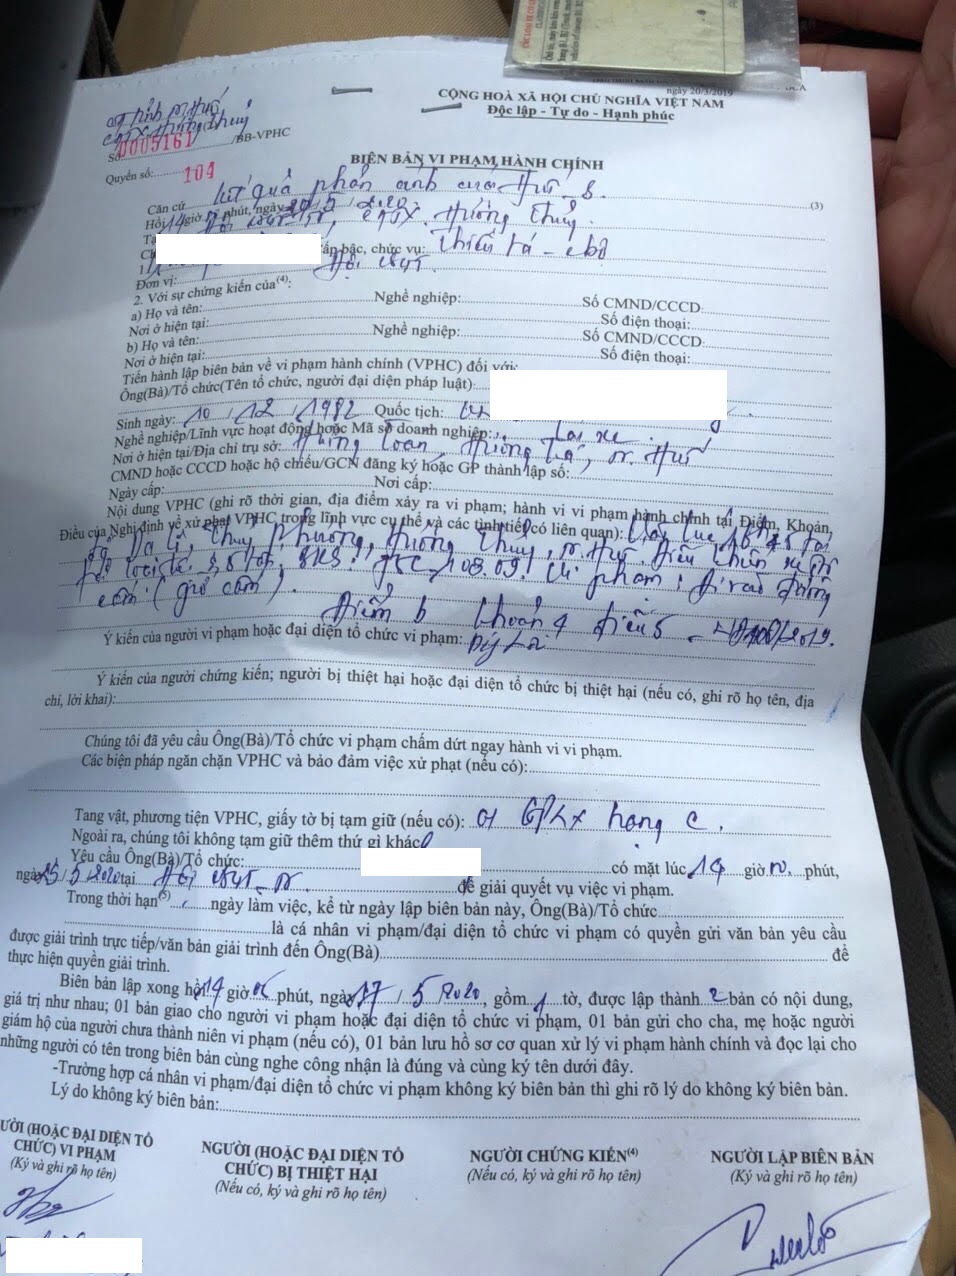 ngày 20/3/2019
CỘNG HOÀ XÃ HỘI CHỦ NGHĨA VIỆT NAM
Độc lập - Tự do - Hạnh phúc
CA Tỉnh
Số: 0005161 /BB-VPHC
Quyển số: 104
BIÊN BẢN VI PHẠM HÀNH CHÍNH
Căn cứ kết quả phản ánh của (3)
Hồi 14 giờ phút, ngày / 5 / 2020
Hương Thủy.
cấp bậc, chức vụ: Thiếu tá - cbộ
1.
Đơn vị: Đội CSGT.
2. Với sự chứng kiến của(4):
a) Họ và tên: Nghề nghiệp: Số CMND/CCCD
Nơi ở hiện tại: Số điện thoại:
b) Họ và tên: Nghề nghiệp: Số CMND/CCCD
Nơi ở hiện tại: Số điện thoại:
Tiến hành lập biên bản về vi phạm hành chính (VPHC) đối với:
Ông(Bà)/Tổ chức(Tên tổ chức, người đại diện pháp luật):
Sinh ngày: 10 / 12 / 1982 Quốc tịch:
Nghề nghiệp/Lĩnh vực hoạt động hoặc Mã số doanh nghiệp: Lái xe
Nơi ở hiện tại/Địa chỉ trụ sở: Huế
CMND hoặc CCCD hoặc hộ chiếu/GCN đăng ký hoặc GP thành lập số:
Ngày cấp: Nơi cấp:
Nội dung VPHC (ghi rõ thời gian, địa điểm xảy ra vi phạm; hành vi vi phạm hành chính tại Điểm, Khoản,
Điều của Nghị định về xử phạt VPHC trong lĩnh vực cụ thể và các tình tiết có liên quan): Vào lúc
Thủy Phương, Hương Thủy, Huế. Điều khiển xe
BKS: Vi phạm: Đi vào đường
cấm (giờ cấm).
Điểm b khoản 4 Điều 5
Ý kiến của người vi phạm hoặc đại diện tổ chức vi phạm:
Ý kiến của người chứng kiến; người bị thiệt hại hoặc đại diện tổ chức bị thiệt hại (nếu có, ghi rõ họ tên, địa
chỉ, lời khai):
Chúng tôi đã yêu cầu Ông(Bà)/Tổ chức vi phạm chấm dứt ngay hành vi vi phạm.
Các biện pháp ngăn chặn VPHC và bảo đảm việc xử phạt (nếu có):
Tang vật, phương tiện VPHC, giấy tờ bị tạm giữ (nếu có): 01 GPLX hạng C.
Ngoài ra, chúng tôi không tạm giữ thêm thứ gì khác
Yêu cầu Ông(Bà)/Tổ chức: có mặt lúc giờ phút,
ngày / 5 / 2020 tại Đội CSGT để giải quyết vụ việc vi phạm.
Trong thời hạn(5) ngày làm việc, kể từ ngày lập biên bản này, Ông(Bà)/Tổ chức
là cá nhân vi phạm/đại diện tổ chức vi phạm có quyền gửi văn bản yêu cầu
được giải trình trực tiếp/văn bản giải trình đến Ông(Bà) để
thực hiện quyền giải trình.
Biên bản lập xong hồi 14 giờ phút, ngày / 5 / 2020, gồm 1 tờ, được lập thành 2 bản có nội dung,
giá trị như nhau; 01 bản giao cho người vi phạm hoặc đại diện tổ chức vi phạm, 01 bản gửi cho cha, mẹ hoặc người
giám hộ của người chưa thành niên vi phạm (nếu có), 01 bản lưu hồ sơ cơ quan xử lý vi phạm hành chính và đọc lại cho
những người có tên trong biên bản cùng nghe công nhận là đúng và cùng ký tên dưới đây.
-Trường hợp cá nhân vi phạm/đại diện tổ chức vi phạm không ký biên bản thì ghi rõ lý do không ký biên bản.
Lý do không ký biên bản:
(HOẶC ĐẠI DIỆN TỔ CHỨC) VI PHẠM
(Ký và ghi rõ họ tên)
NGƯỜI (HOẶC ĐẠI DIỆN TỔ CHỨC) BỊ THIỆT HẠI
(Nếu có, ký và ghi rõ họ tên)
NGƯỜI CHỨNG KIẾN(4)
(Nếu có, ký và ghi rõ họ tên)
NGƯỜI LẬP BIÊN BẢN
(Ký và ghi rõ họ tên)